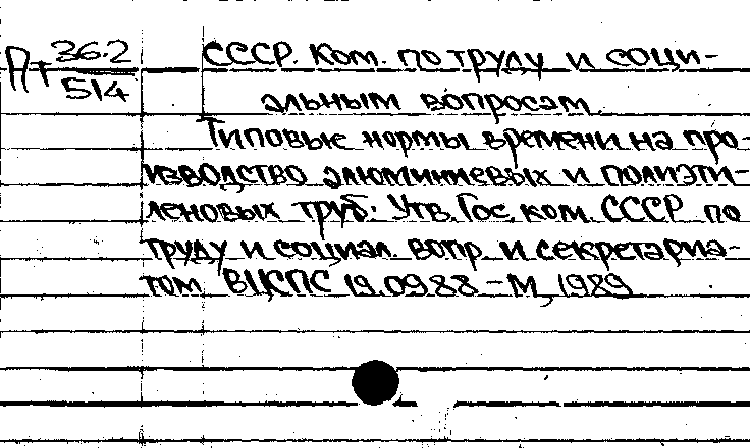 Пт 36.2/514
СССР. Ком. по труду и соци-
альным вопросам.
Типовые нормы времени на про-
изводство алюминиевых и полиэти-
леновых труб: Утв. Гос. ком. СССР по
труду и социал. вопр. и секретариа-
том ВЦСПС 19.09.88 - М, 1989